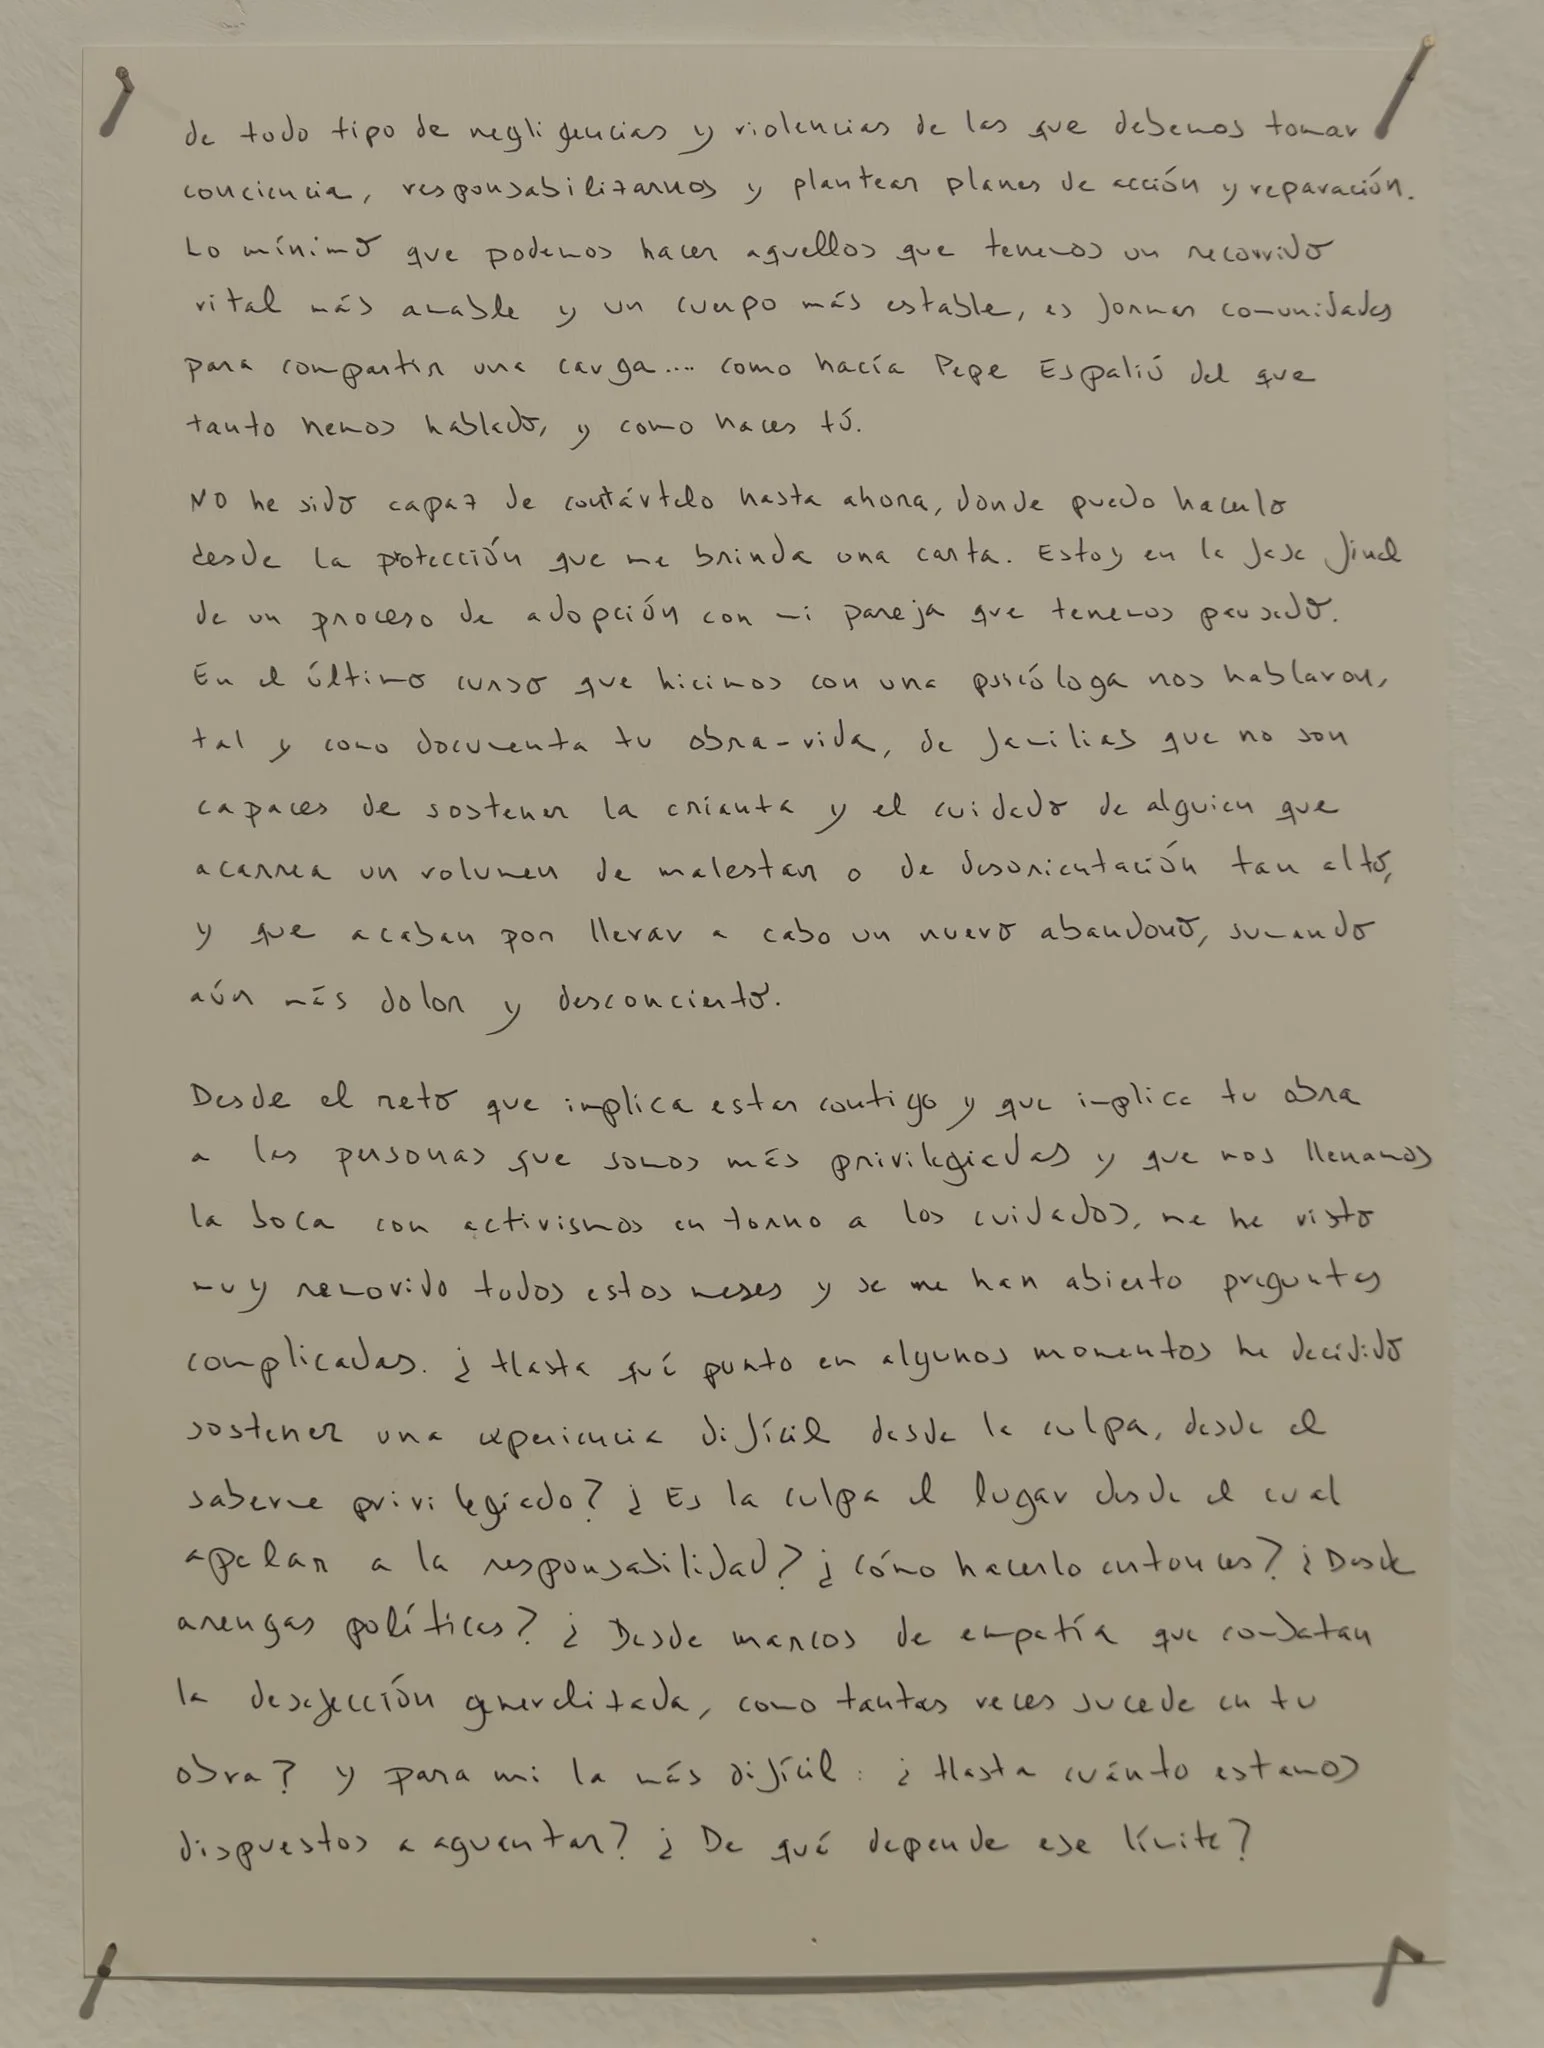 de todo tipo de negligencias y violencias de las que debemos tomar
conciencia, responsabilizarnos y plantear planes de acción y reparación.
Lo mínimo que podemos hacer aquellos que tenemos un recorrido
vital más amable y un cuerpo más estable, es formar comunidades
para compartir una carga.... como hacía Pepe Espaliú del que
tanto hemos hablado, y como haces tú.
No he sido capaz de contártelo hasta ahora, donde puedo hacerlo
desde la protección que me brinda una carta. Estoy en la fase final
de un proceso de adopción con mi pareja que tenemos pausado.
En el último curso que hicimos con una psicóloga nos hablaron,
tal y como documenta tu obra-vida, de familias que no son
capaces de sostener la crianza y el cuidado de alguien que
acarrea un volumen de malestar o de desorientación tan alto,
y que acaban por llevar a cabo un nuevo abandono, sumando
aún más dolor y desconcierto.
Desde el reto que implica estar contigo y que implica tu obra
a las personas que somos más privilegiadas y que nos llenamos
la boca con activismos en torno a los cuidados, me he visto
muy removido todos estos meses y se me han abierto preguntas
complicadas. ¿Hasta qué punto en algunos momentos he decidido
sostener una experiencia difícil desde la culpa, desde el
saberme privilegiado? ¿Es la culpa el lugar desde el cual
apelar a la responsabilidad? ¿Cómo hacerlo entonces? ¿Desde
arengas políticas? ¿Desde marcos de empatía que combatan
la desafección generalizada, como tantas veces sucede en tu
obra? y para mi la más difícil: ¿Hasta cuánto estamos
dispuestos a aguantar? ¿De qué depende ese límite?